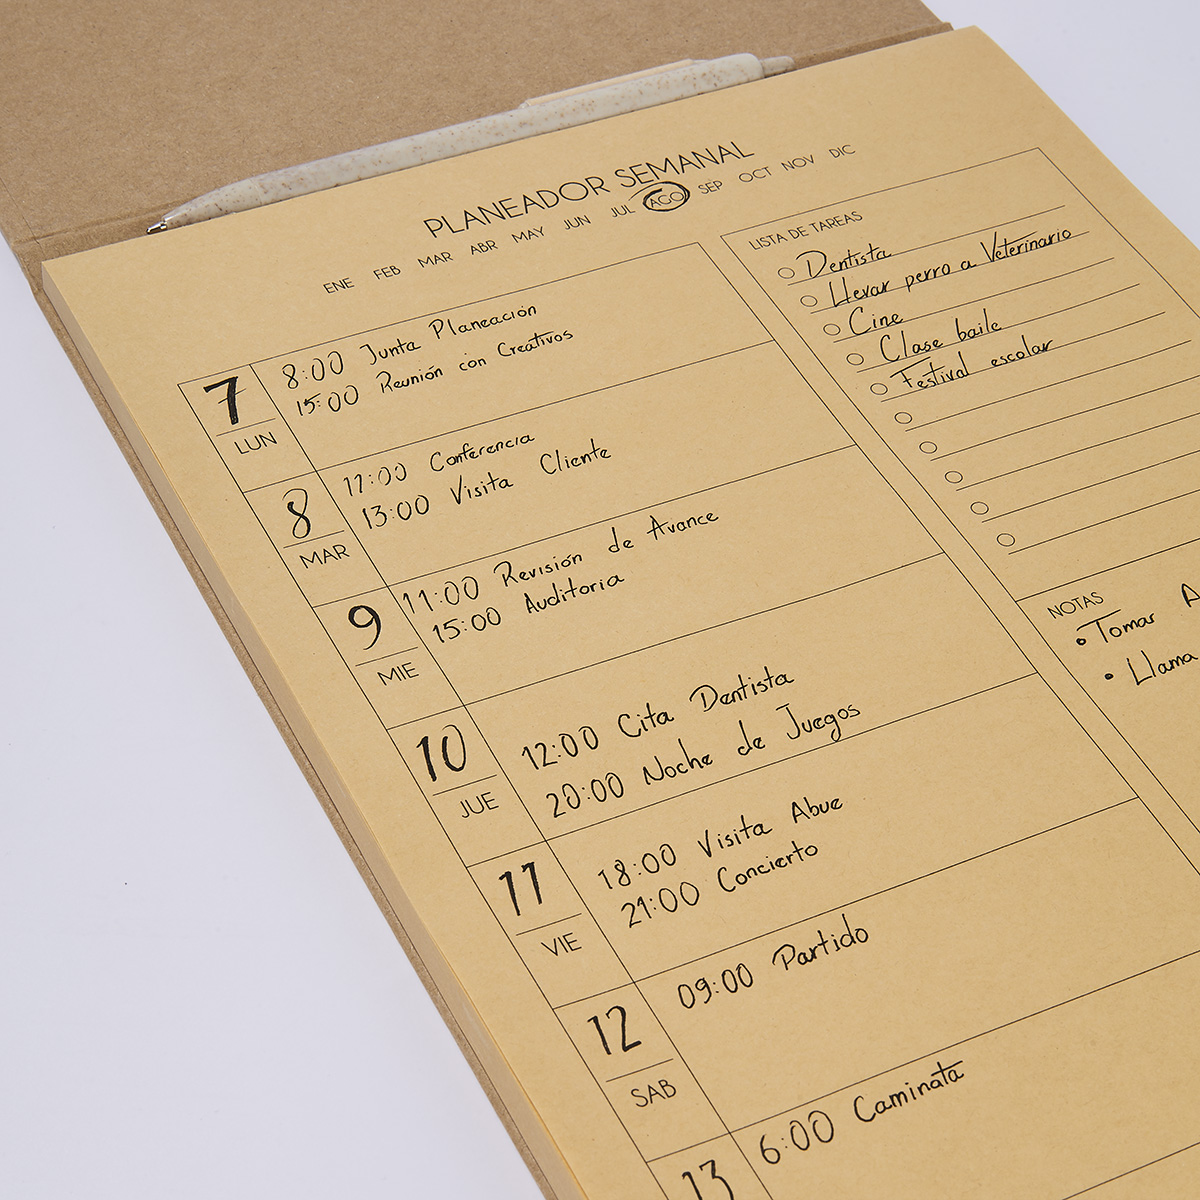 PLANEADOR SEMANAL
ENE FEB MAR ABR MAY JUN JUL AGO SEP OCT NOV DIC
7
LUN
8:00 Junta Planeación
15:00 Reunión con Creativos
8
MAR
11:00 Conferencia
13:00 Visita Cliente
9
MIE
11:00 Revisión de Avance
15:00 Auditoria
10
JUE
12:00 Cita Dentista
20:00 Noche de Juegos
11
VIE
18:00 Visita Abue
21:00 Concierto
12
SAB
09:00 Partido
13
6:00 Caminata
LISTA DE TAREAS
Dentista
Llevar perro a Veterinario
Cine
Clase baile
Festival escolar
NOTAS
• Tomar A
• Llama